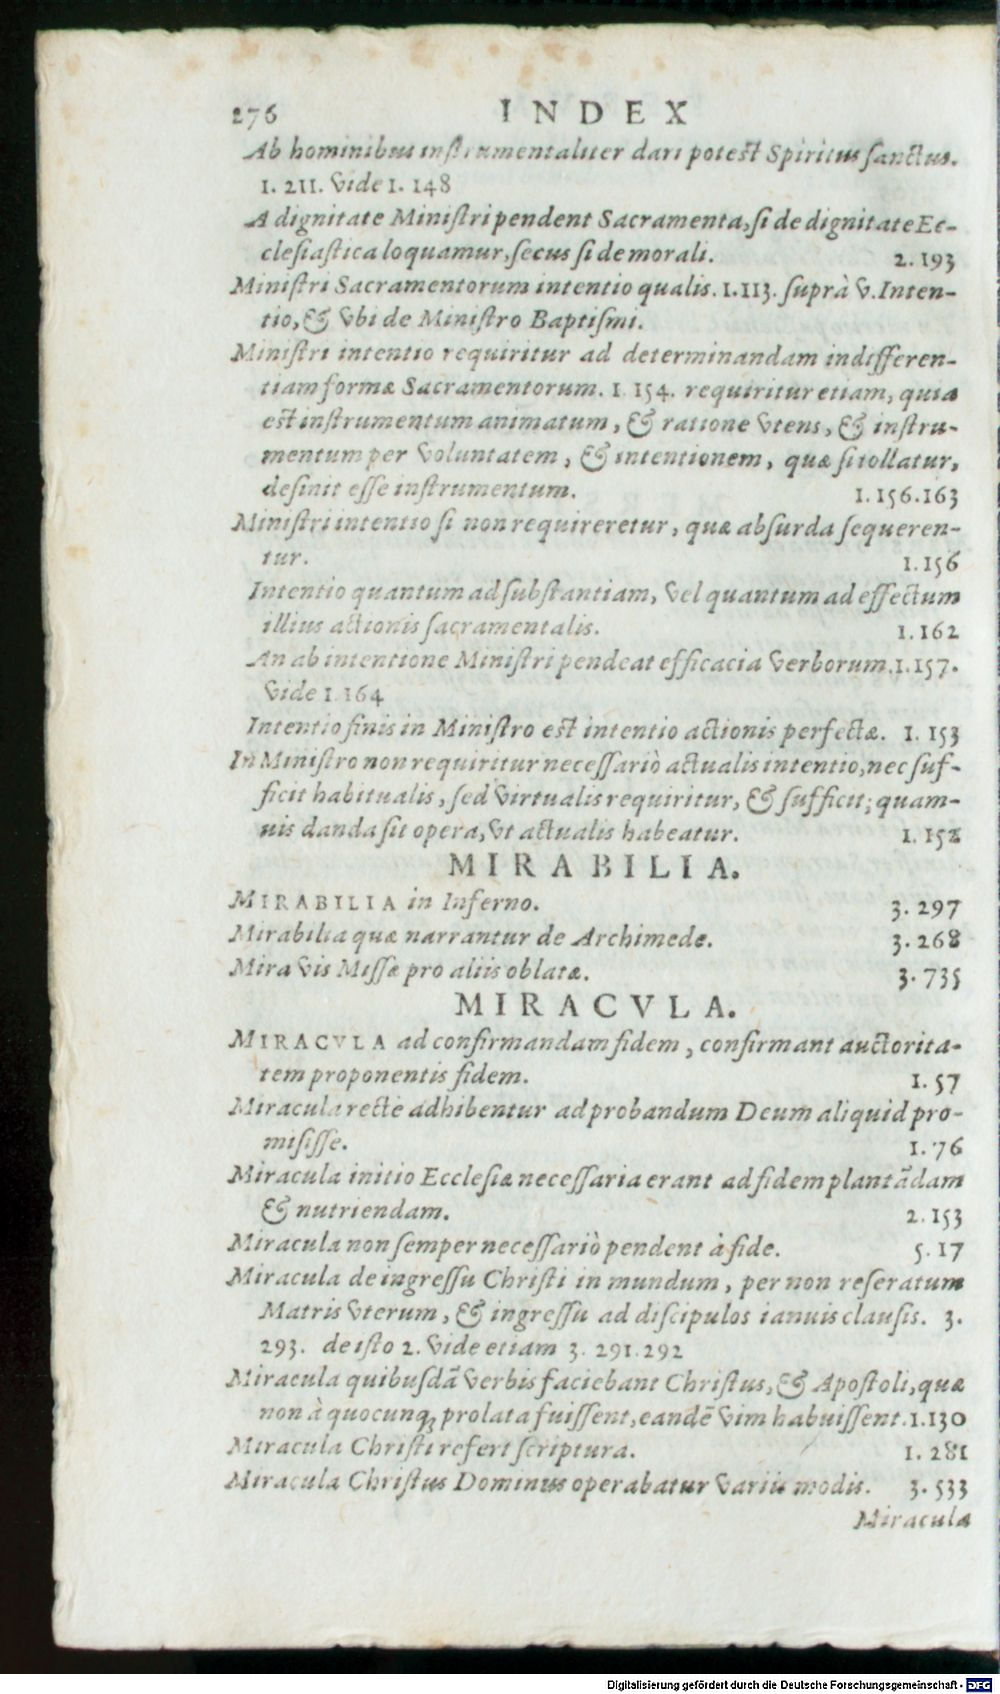 276 INDEX
Ab hominibus instrumentaliter dari potest Spiritus sanctus.
1. 211. vide 1. 148
A dignitate Ministri pendent Sacramenta, si de dignitate Ec-
clesiastica loquamur, secus si de morali. 2. 193
Ministri Sacramentorum intentio qualis. 1.113. suprà v. Inten-
tio, & vbi de Ministro Baptismi.
Ministri intentio requiritur ad determinandam indifferen-
tiam formæ Sacramentorum. 1. 154. requiritur etiam, quia
est instrumentum animatum, & ratione vtens, & instru-
mentum per voluntatem, & intentionem, quæ si tollatur,
desinit esse instrumentum. 1. 156.163
Ministri intentio si non requireretur, quæ absurda sequeren-
tur. 1.156
Intentio quantum ad substantiam, vel quantum ad effectum
illius actionis sacramentalis. 1.162
An ab intentione Ministri pendeat efficacia verborum. 1.157.
vide 1.164
Intentio finis in Ministro est intentio actionis perfectæ. 1. 153
In Ministro non requiritur necessariò actualis intentio, nec suf-
ficit habitualis, sed virtualis requiritur, & sufficit; quam-
uis danda sit opera, vt actualis habeatur. 1.152
MIRABILIA.
MIRABILIA in Inferno. 3. 297
Mirabilia quæ narrantur de Archimede. 3.268
Mira vis Missæ pro aliis oblatæ. 3. 735
MIRACVLA.
MIRACVLA ad confirmandam fidem, confirmant auctorita-
tem proponentis fidem. 1. 57
Miracula recte adhibentur ad probandum Deum aliquid pro-
misisse. 1. 76
Miracula initio Ecclesiæ necessaria erant ad fidem plantãdam
& nutriendam. 2.153
Miracula non semper necessariò pendent à fide. 5.17
Miracula de ingressu Christi in mundum, per non reseratum
Matris vterum, & ingressu ad discipulos ianuis clausis. 3.
293. de isto 2. vide etiam 3. 291.292
Miracula quibusdã verbis faciebant Christus, & Apostoli, quæ
non à quocunq; prolata fuissent, eandẽ vim habuissent. 1.130
Miracula Christi refert scriptura. 1. 281
Miracula Christus Dominus operabatur variis modis. 3. 533
Miracula
Digitalisierung gefördert durch die Deutsche Forschungsgemeinschaft - DFG